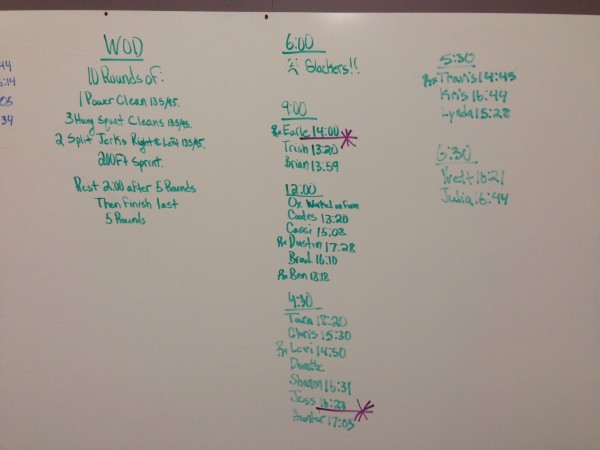 44
:14
05
34
WOD
10 Rounds of:
1 Power Clean 135/95.
3 Hang Squat Cleans 135/95.
2 Split Jerks Right & Left 135/95.
200Ft Sprint.
Rest 2:00 after 5 Rounds
Then Finish last
5 Rounds
6:00
Slackers!!
9:00
Rx Earle 14:00
Trish 13:20
Brian 13:59
12:00
Ox Worked on Form
Coates 13:20
Cassi 15:08
Rx Dustin 17:28
Brad 16:10
Rx Ben 18:18
4:30
Tara 18:20
Chris 15:30
Rx Levi 14:50
Shanon 16:31
Jess
Hunter 17:05
5:30
Rx Travis 14:45
Kris 16:44
Lynda 15:28
6:30
Brett
Julia